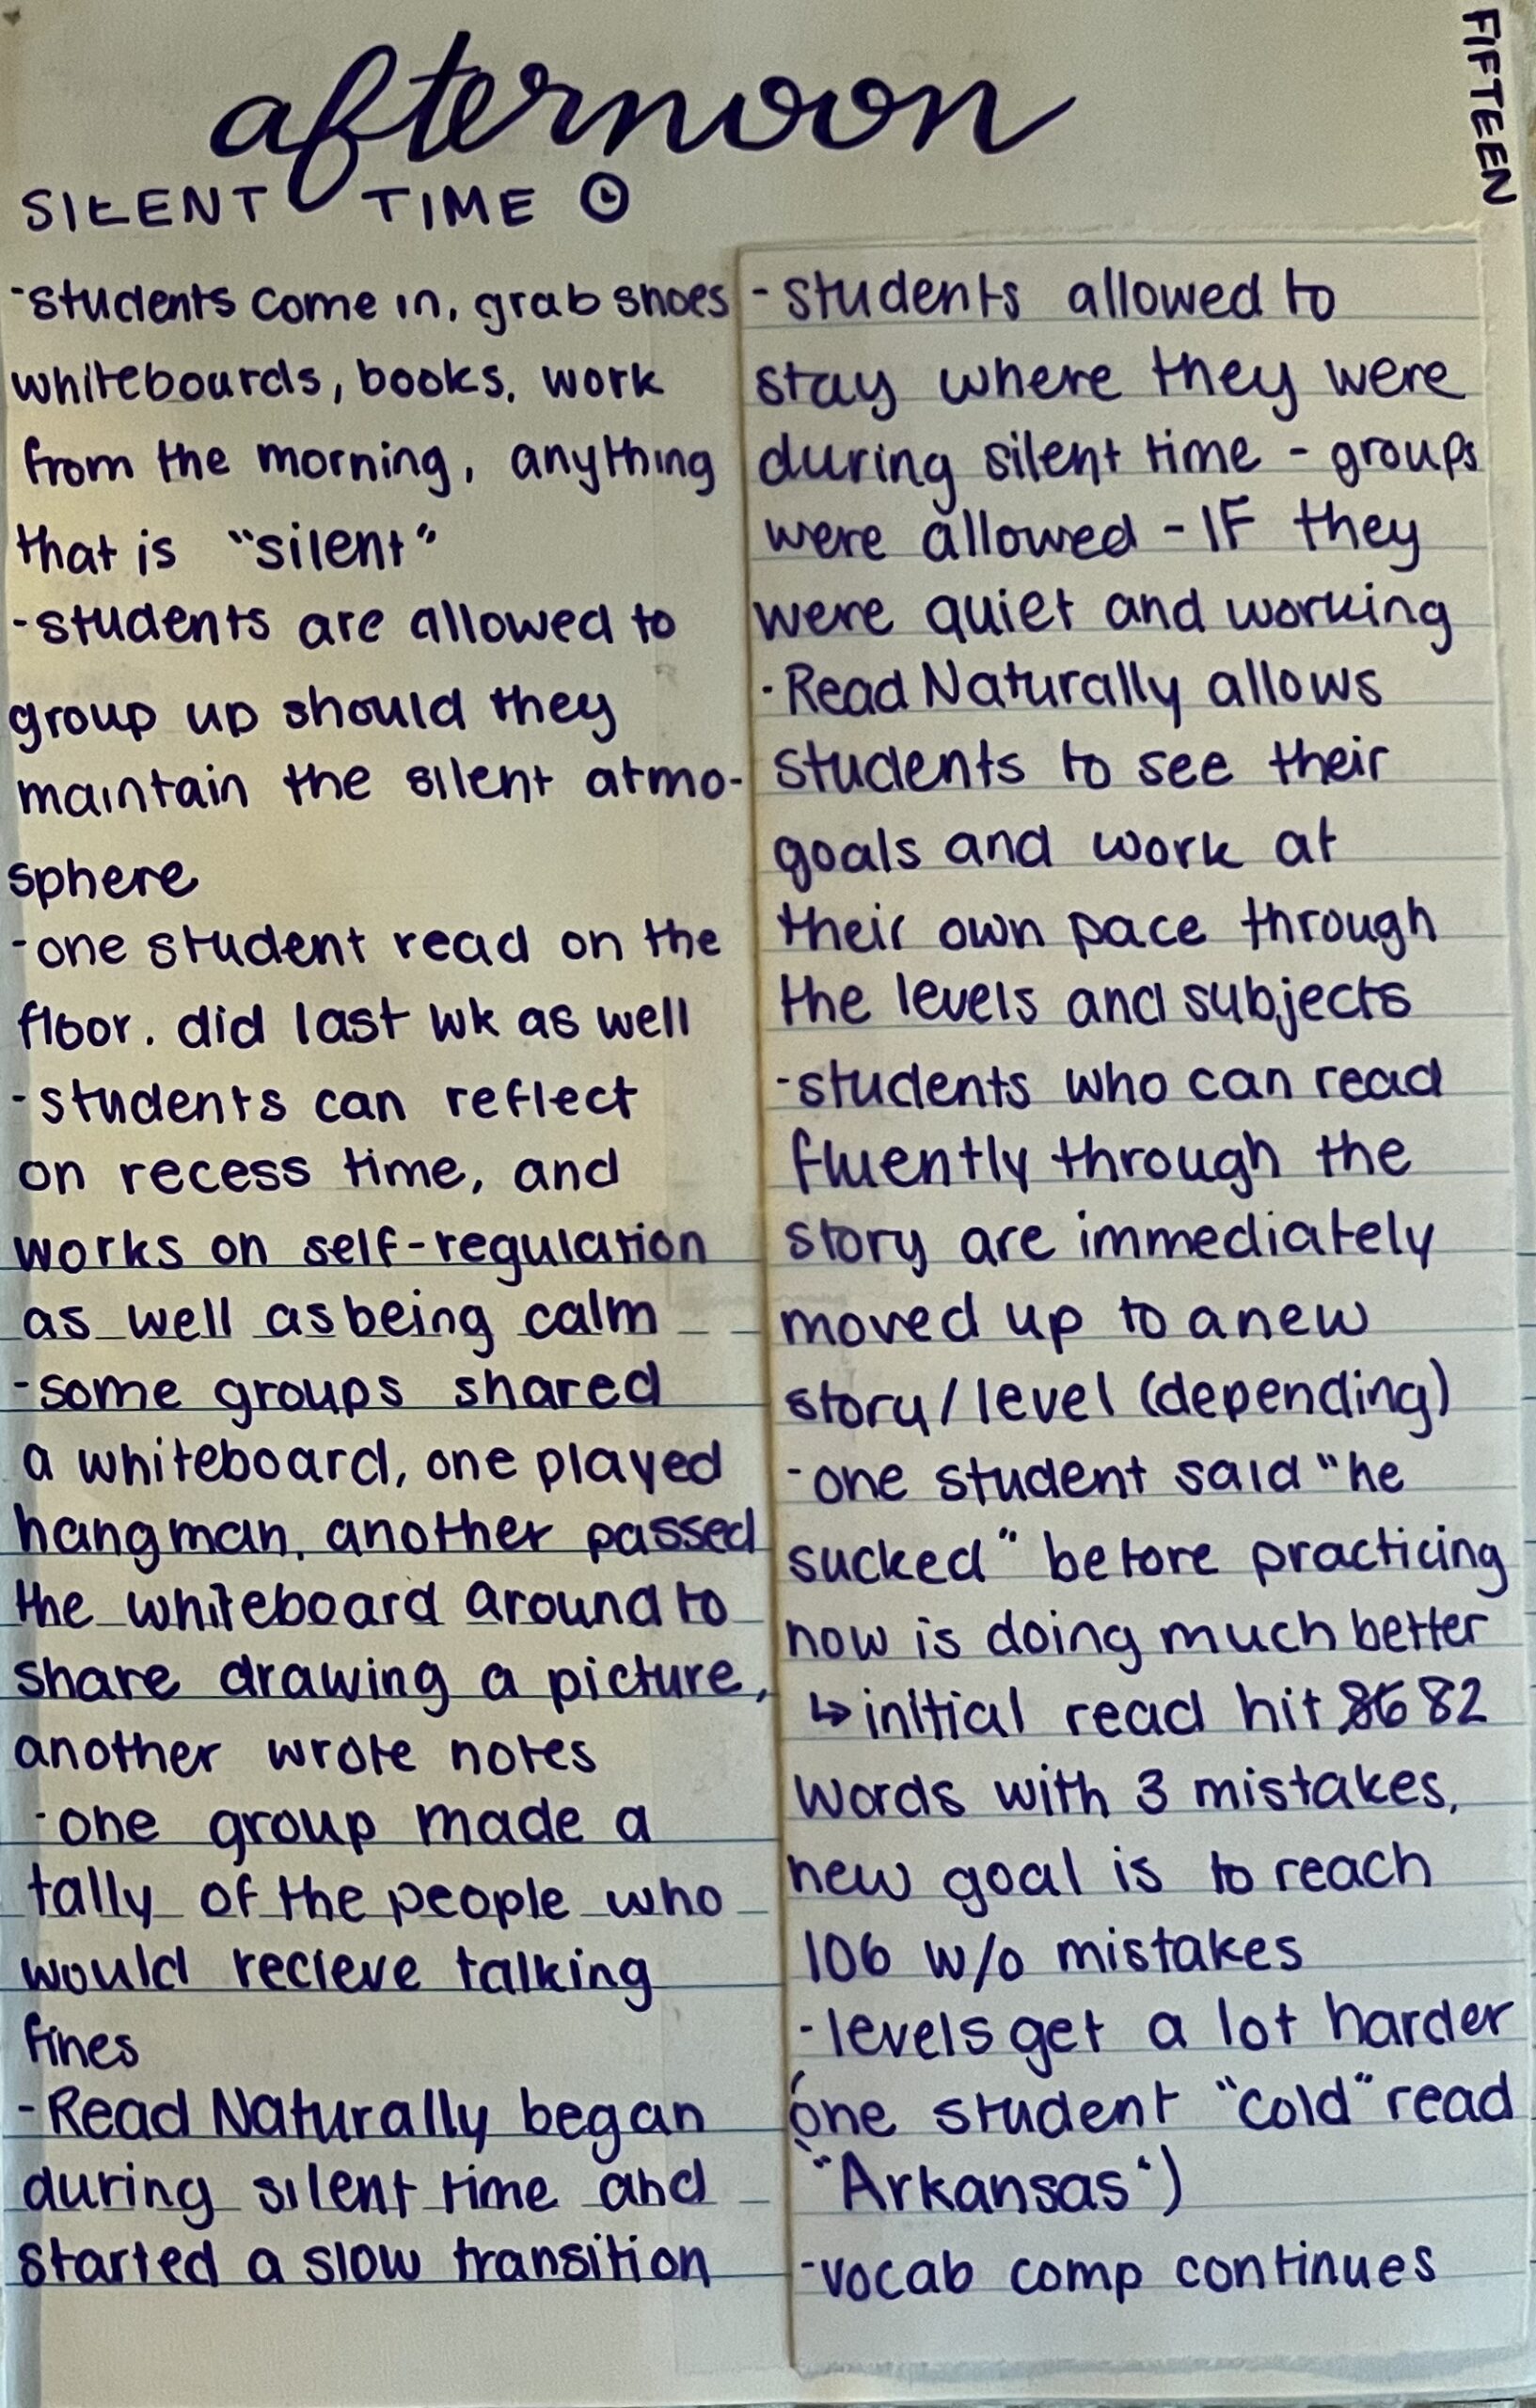 afternoon
FIFTEEN
SILENT TIME
-students come in, grab shoes
whiteboards, books, work
from the morning, anything
that is "silent"
-students are allowed to
group up should they
maintain the silent atmo-
sphere
-one student read on the
floor. did last wk as well
-students can reflect
on recess time, and
works on self-regulation
as well as being calm
-some groups shared
a whiteboard, one played
hangman, another passed
the whiteboard around to
share drawing a picture,
another wrote notes
-one group made a
tally of the people who
would recieve talking
fines
-Read Naturally began
during silent time and
started a slow transition
-students allowed to
stay where they were
during silent time - groups
were allowed - IF they
were quiet and working
-Read Naturally allows
students to see their
goals and work at
their own pace through
the levels and subjects
-students who can read
fluently through the
story are immediately
moved up to a new
story/level (depending)
-one student said "he
sucked" before practicing
now is doing much better
↳ initial read hit 86 82
words with 3 mistakes,
new goal is to reach
106 w/o mistakes
-levels get a lot harder
(one student "cold" read
"Arkansas")
-vocab comp continues